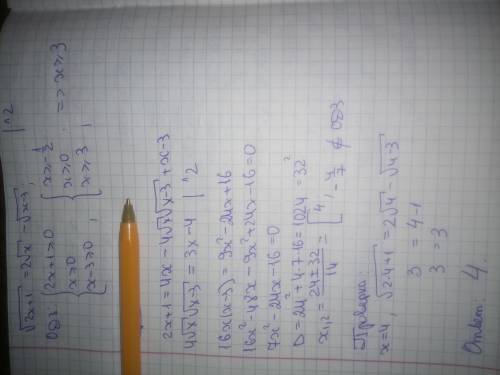 √2x+1 = 2√x - √x-3, | ^2
ОДЗ: { 2x+1≥0 x≥0 x-3≥0 , { x≥-1/2 x≥0 x≥3 , => x≥3
2x+1 = 4x - 4√x√x-3 + x-3
4√x√x-3 = 3x-4 | ^2
16x(x-3) = 9x²-24x+16
16x²-48x-9x²+24x-16=0
7x²-24x-16=0
D = 24²+4·7·16=1024 = 32²
x₁,₂ = 24±32/14 = [ 4, -4/7 ∉ ОДЗ
Проверка:
x=4, √2·4+1 = 2√4 - √4-3
3 = 4-1
3 = 3
Ответ: 4.